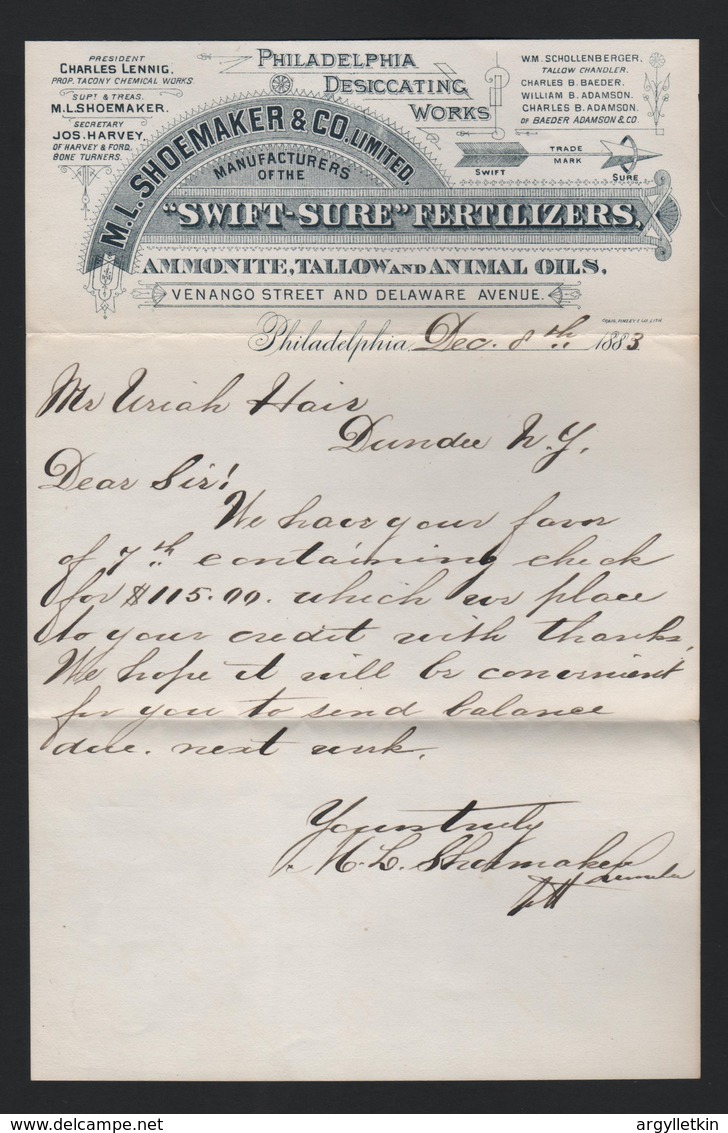 PRESIDENT
CHARLES LENNIG,
PROP. TACONY CHEMICAL WORKS.
SUPT & TREAS.
M.L. SHOEMAKER.
SECRETARY
JOS. HARVEY,
OF HARVEY & FORD,
BONE TURNERS.
PHILADELPHIA
DESICCATING
WORKS
WM. SCHOLLENBERGER,
TALLOW CHANDLER.
CHARLES B. BAEDER.
WILLIAM B. ADAMSON.
CHARLES B. ADAMSON.
OF BAEDER ADAMSON & CO.
TRADE
MARK
SWIFT
SURE
M.L. SHOEMAKER & CO. LIMITED,
MANUFACTURERS
OF THE
"SWIFT-SURE" FERTILIZERS,
AMMONITE, TALLOW AND ANIMAL OILS.
VENANGO STREET AND DELAWARE AVENUE.
Philadelphia, Dec. 8th 1883
Mr Uriah Hair
Dundee N.Y.
Dear Sir!
We have your favor
of 7th containing check
for $115.00. which we place
to your credit with thanks.
We hope it will be convenient
for you to send balance
due. next week.
Yours truly
M. L. Shoemaker
delcampe.net
argylletkin